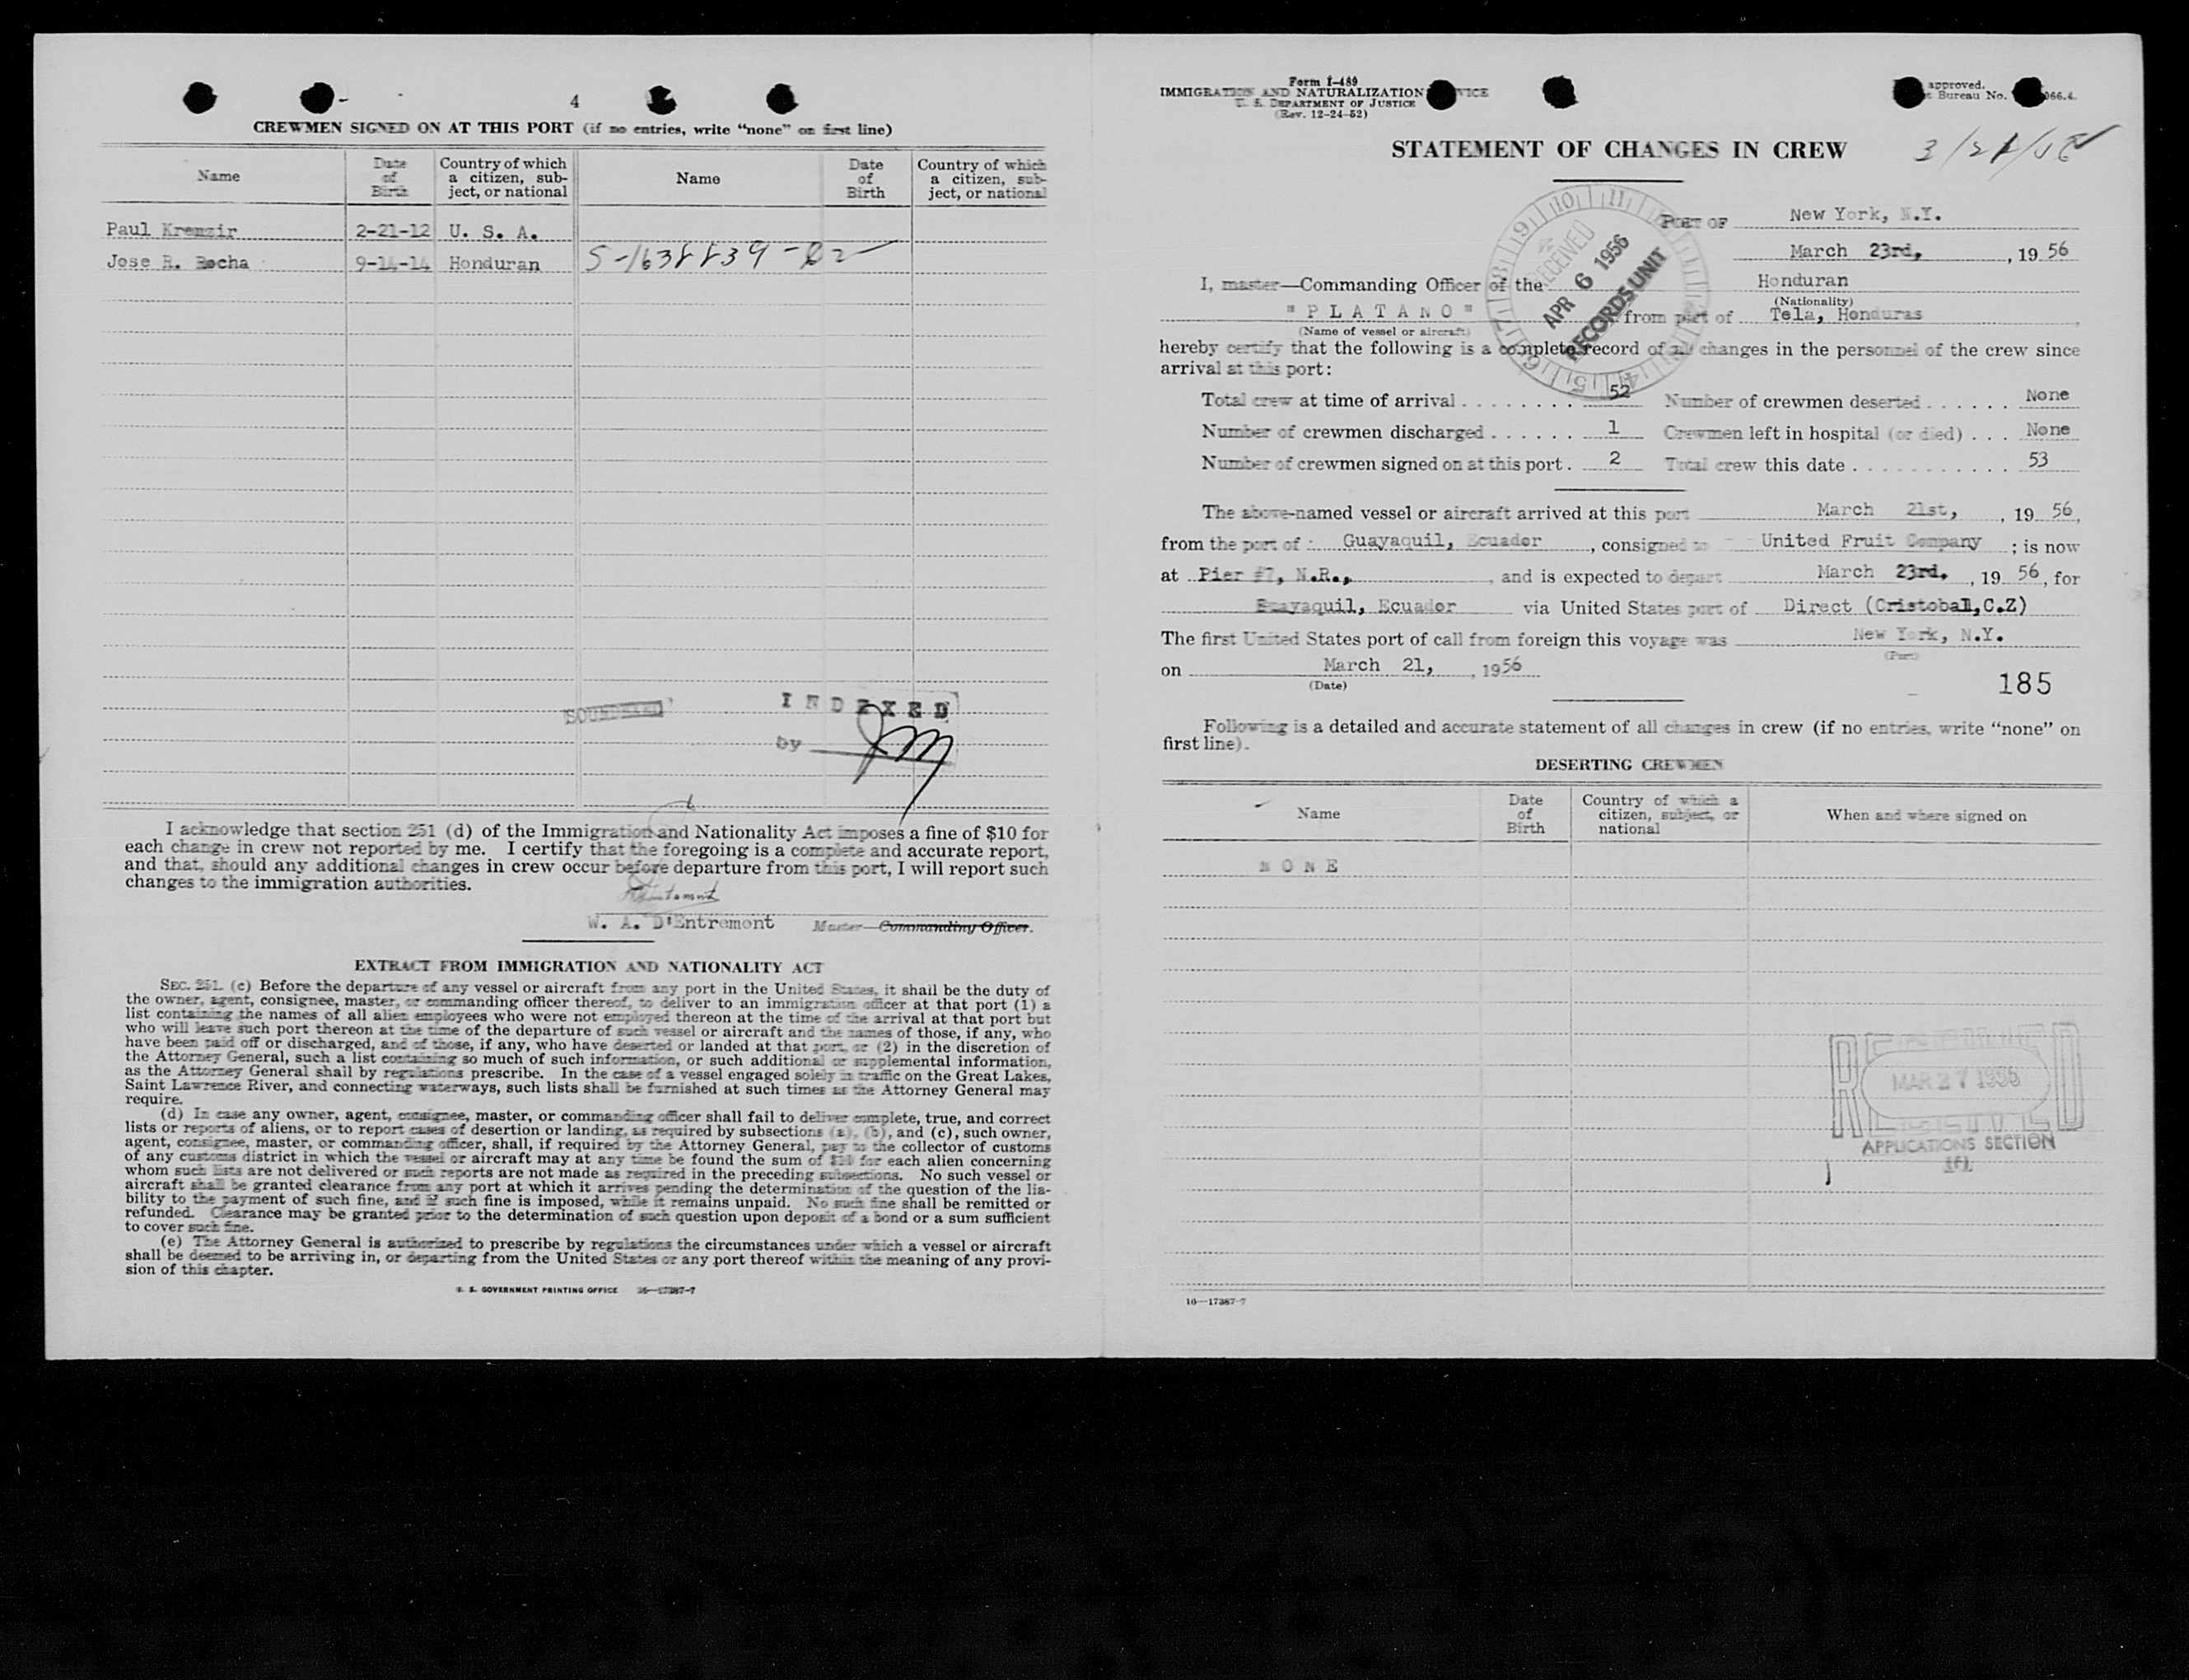 4
CREWMEN SIGNED ON AT THIS PORT (if no entries, write “none” on first line)
Name Date of Birth Country of which a citizen, subject, or national Name Date of Birth Country of which a citizen, subject, or national
Paul Kremzir 2-21-12 U. S. A.
Jose R. Rocha 9-14-14 Honduran S-1638839-
SOUNDEXED
INDEXED
by
I acknowledge that section 251 (d) of the Immigration and Nationality Act imposes a fine of $10 for
each change in crew not reported by me. I certify that the foregoing is a complete and accurate report,
and that, should any additional changes in crew occur before departure from this port, I will report such
changes to the immigration authorities.
W. A. D'Entremont Master—Commanding Officer.
EXTRACT FROM IMMIGRATION AND NATIONALITY ACT
SEC. 251. (c) Before the departure of any vessel or aircraft from any port in the United States, it shall be the duty of
the owner, agent, consignee, master, or commanding officer thereof, to deliver to an immigration officer at that port (1) a
list containing the names of all alien employees who were not employed thereon at the time of the arrival at that port but
who will leave such port thereon at the time of the departure of such vessel or aircraft and the names of those, if any, who
have been paid off or discharged, and of those, if any, who have deserted or landed at that port, or (2) in the discretion of
the Attorney General, such a list containing so much of such information, or such additional or supplemental information,
as the Attorney General shall by regulations prescribe. In the case of a vessel engaged solely in traffic on the Great Lakes,
Saint Lawrence River, and connecting waterways, such lists shall be furnished at such times as the Attorney General may
require.
(d) In case any owner, agent, consignee, master, or commanding officer shall fail to deliver complete, true, and correct
lists or reports of aliens, or to report cases of desertion or landing, as required by subsections (a), (b), and (c), such owner,
agent, consignee, master, or commanding officer, shall, if required by the Attorney General, pay to the collector of customs
of any customs district in which the vessel or aircraft may at any time be found the sum of $10 for each alien concerning
whom such lists are not delivered or such reports are not made as required in the preceding subsections. No such vessel or
aircraft shall be granted clearance from any port at which it arrives pending the determination of the question of the lia-
bility to the payment of such fine, and if such fine is imposed, while it remains unpaid. No such fine shall be remitted or
refunded. Clearance may be granted prior to the determination of such question upon deposit of a bond or a sum sufficient
to cover such fine.
(e) The Attorney General is authorized to prescribe by regulations the circumstances under which a vessel or aircraft
shall be deemed to be arriving in, or departing from the United States or any port thereof within the meaning of any provi-
sion of this chapter.
U. S. GOVERNMENT PRINTING OFFICE 16—17387-7
Form I-489
IMMIGRATION AND NATURALIZATION
U. S. DEPARTMENT OF JUSTICE
(Rev. 12-24-52)
approved.
Bureau No. 066.4.
STATEMENT OF CHANGES IN CREW
PORT OF New York, N.Y.
March 23rd, , 19 56
RECEIVED
APR 6 1956
RECORDS UNIT
I, master—Commanding Officer of the Honduran
(Nationality)
"PLATANO" from port of Tela, Honduras
(Name of vessel or aircraft)
hereby certify that the following is a complete record of all changes in the personnel of the crew since
arrival at this port:
Total crew at time of arrival 52 Number of crewmen deserted None
Number of crewmen discharged 1 Crewmen left in hospital (or died) None
Number of crewmen signed on at this port. 2 Total crew this date 53
The above-named vessel or aircraft arrived at this port March 21st, , 19 56,
from the port of Guayaquil, Ecuador , consigned to United Fruit Company ; is now
at Pier #7, N.R., , and is expected to depart March 23rd, , 19 56, for
Guayaquil, Ecuador via United States port of Direct (Cristobal,C.Z)
The first United States port of call from foreign this voyage was New York, N.Y.
(Port)
on March 21, , 1956
(Date)
185
Following is a detailed and accurate statement of all changes in crew (if no entries, write “none” on
first line).
DESERTING CREWMEN
Name Date of Birth Country of which a citizen, subject, or national When and where signed on
NONE
RECEIVED
MAR 27 1956
APPLICATIONS SECTION
16—17387-7